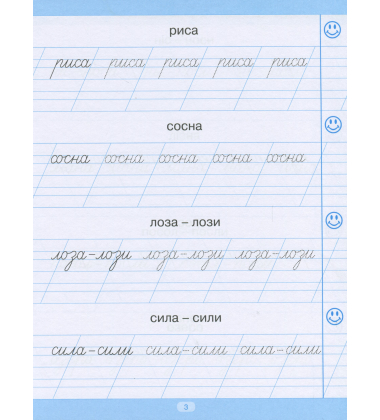 риса
риса риса риса риса риса
сосна
сосна сосна сосна сосна сосна
лоза – лози
лоза – лози лоза – лози лоза – лози
сила – сили
сила – сили сила – сили сила – сили
3